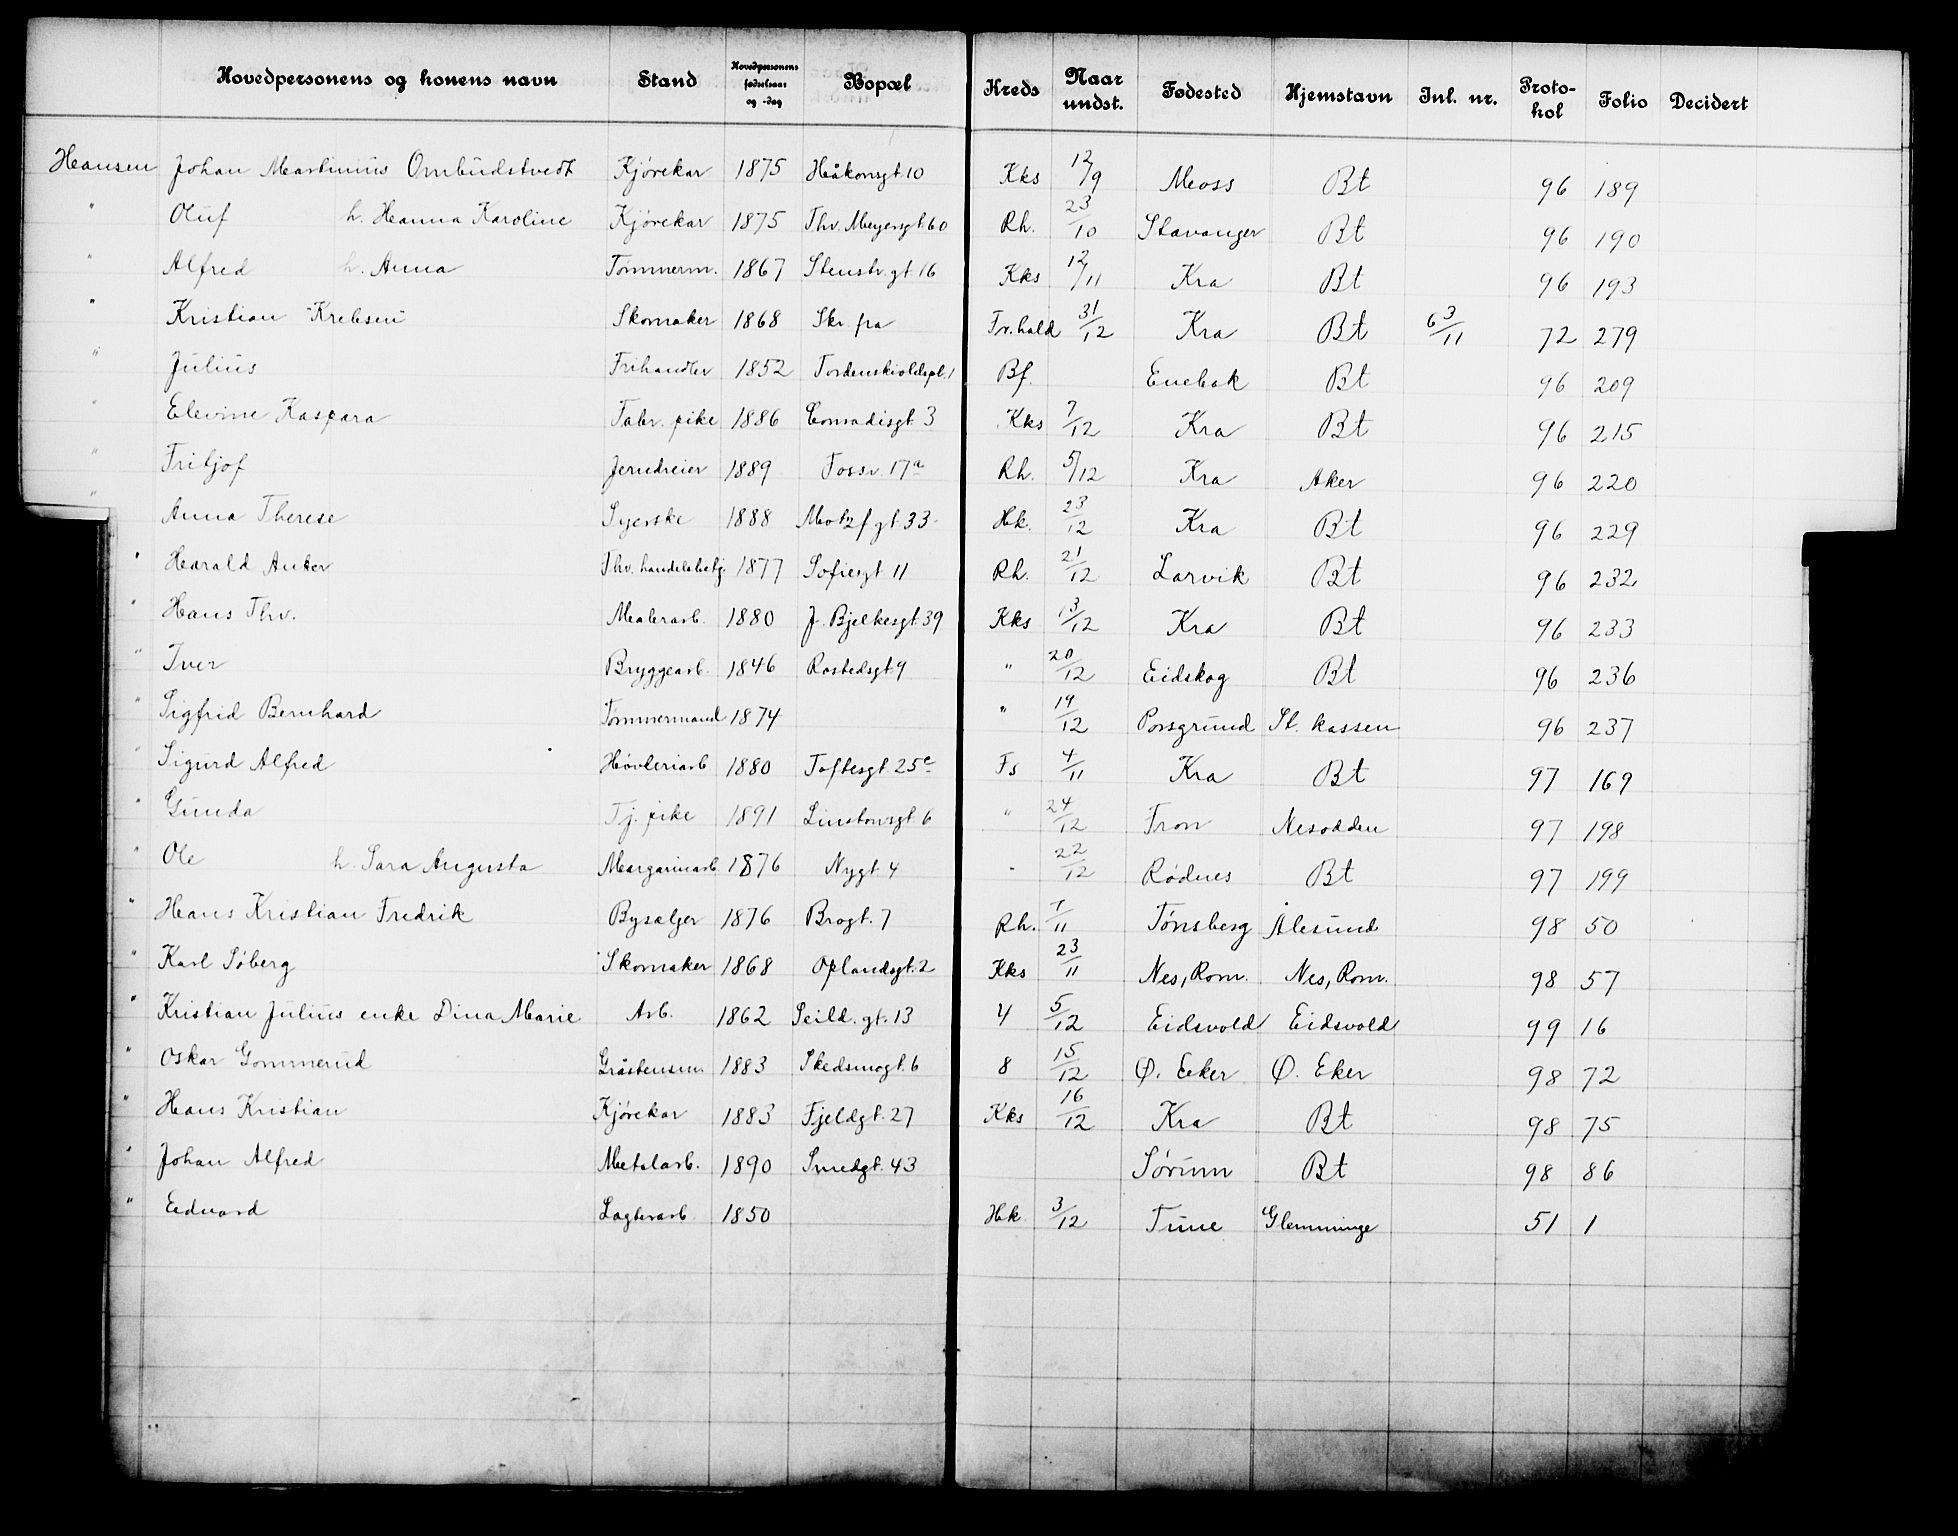 Hovedpersonens og konens navn Stand Hovedpersonens fødselsaar og -dag Bopæl Kreds Naar undst. Fødested Hjemstavn Inl. nr. Protokol Folio Decidert
Hansen Johan Martinius Ombudstvedt Kjørekar 1875 Håkonsgt. 10 Kks 12/9 Moss Bt 96 189
" Oluf h. Hanna Karoline Kjørekar 1875 Thv. Meyersgt. 60 Rh. 23/10 Stavanger Bt 96 190
" Alfred h. Anna Tømmerm. 1867 Stenstr. gt. 16 Kks 12/11 Kra Bt 96 193
" Kristian "Krebsen" Skomaker 1868 Skr fra Tr. hald 31/12 Kra Bt 6 3/11 72 279
" Julius Frihandler 1852 Tordenskioldspl. 1 Bf. Enebak Bt 96 209
" Elevine Kaspara Fabr. pike 1886 Conradisgt. 3 Kks 7/12 Kra Bt 96 215
" Fritjof Jerndreier 1889 Fossv. 17a Rh. 5/12 Kra Aker 96 220
" Anna Therese Syerske 1888 Motzf gt. 33 Hk. 23/12 Kra Bt 96 229
" Harald Anker Fhv. handelsbetj 1877 Sofiesgt 11 Rh. 21/12 Larvik Bt 96 232
" Hans Thv. Malerarb. 1880 J. Bjelkesgt. 39 Kks 13/12 Kra Bt 96 233
" Iver Bryggearb. 1846 Rostedsgt. 9 " 20/12 Eidskog Bt 96 236
" Sigfrid Bernhard Tømmermand 1874 " 19/12 Porsgrund St. kassen 96 237
" Sigurd Alfred Høvleriarb 1880 Toftesgt. 25c Fs 4/11 Kra Bt 97 169
" Gunda Tj. pike 1891 Linstowsgt. 6 " 24/12 Fron Nesodden 97 198
" Ole h. Sara Augusta Margarinarb. 1876 Nygt. 4 " 22/12 Rødnes Bt 97 199
" Hans Kristian Fredrik Bysælger 1876 Brogt. 7 Rh. 7/11 Tønsberg Ålesund 98 50
" Karl Søberg Skomaker 1868 Oplandsgt. 2 Kks 23/11 Nes, Rom. Nes, Rom. 98 57
" Kristian Julius enke Dina Marie Arb. 1862 Seild. gt. 13 4 5/12 Eidsvold Eidsvold 99 16
" Oskar Gommerud Gråstensm 1883 Skedsmogt. 6 8 15/12 Ø. Eeker Ø. Eker 98 72
" Hans Kristian Kjørekar 1883 Fjeldgt. 27 Kks 16/12 Kra Bt 98 75
" Johan Alfred Metalarb. 1890 Smedgt. 43 Sørum Bt 98 86
" Edvard Lagerarb. 1850 Hk. 3/12 Tune Glemminge 51 1